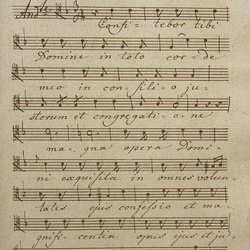 And.te Confi - tebor tibi
Domine in toto cor - de
meo in con - silio ju -
storum et congregati - o - ne
ma - gna opera Domi -
ni exquisita in omnes volun -
tates ejus confessio et ma -
gnifi - centia opus ejus et ju -